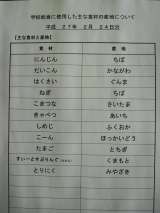 学校給食に使用した主な食材の産地について
平成 27年 2月 24日分
【主な食材と産地】
食材 産地
にんじん ちば
だいこん かながわ
はくさい ぐんま
ねぎ ちば
こまつな さいたま
きゃべつ あいち
しめじ ふくおか
こーん ほっかいどう
たまご とちぎ
すいーとすぷりんぐ くまもと
とりにく みやざき